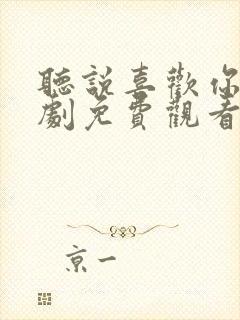 聽說喜歡你
劇免費觀看
京一